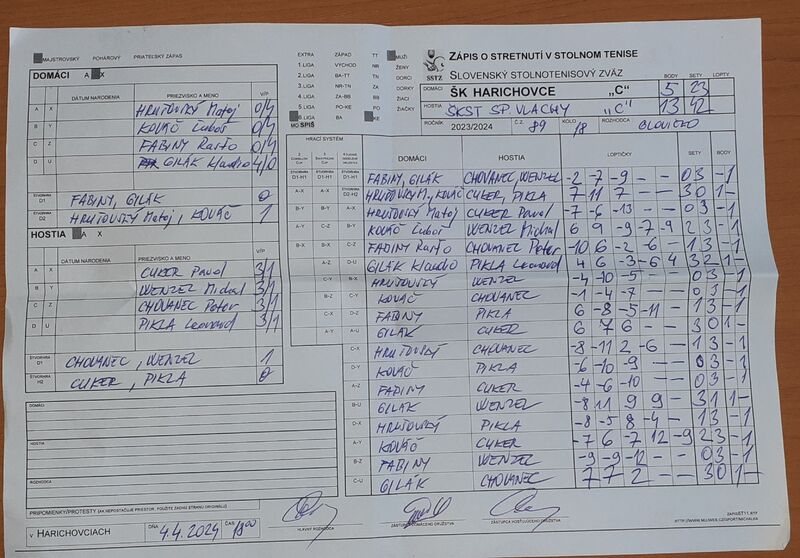 MAJSTROVSKÝ POHÁROVÝ PRIATEĽSKÝ ZÁPAS
DOMÁCI A X
DÁTUM NARODENIA PRIEZVISKO A MENO V/P
A X HRUŤOVSKÝ Matej 0/4
B Y KOVÁČ Ľuboš 0/4
C Z FABINY Rasťo 0/4
D U GILÁK Klaudio 4/0
ŠTVORHRA D1 FABINY, GILÁK 0
ŠTVORHRA D2 HRUŤOVSKÝ Matej, KOVÁČ 1
HOSTIA A X
DÁTUM NARODENIA PRIEZVISKO A MENO V/P
A X CUKER Pavol 3/1
B Y WENZEL Michal 3/1
C Z CHOVANEC Peter 3/1
D U PIKLA Leonard 3/1
ŠTVORHRA D1 CHOVANEC, WENZEL 1
ŠTVORHRA H2 CUKER, PIKLA 0
DOMÁCI
HOSTIA
ROZHODCA
PRIPOMIENKY/PROTESTY (AK NEPOSTAČUJE PRIESTOR, POUŽITE ZADNÚ STRANU ORIGINÁLU)
V HARICHOVCIACH DŇA 4.4.2024 ČAS 18:00
HLAVNÝ ROZHODCA
ZÁSTUPCA DOMÁCEHO DRUŽSTVA
ZÁSTUPCA HOSŤUJÚCEHO DRUŽSTVA
EXTRA ZÁPAD TT MUŽI
1.LIGA VÝCHOD NR ŽENY
2.LIGA BA-TT TN DORCI
3.LIGA NR-TN ZA DORKY
4.LIGA ZA-BB BB ŽIACI
5.LIGA PO-KE PO ŽIAČKY
6.LIGA BA KE
MO SPIŠ
SSTZ
ZÁPIS O STRETNUTÍ V STOLNOM TENISE
SLOVENSKÝ STOLNOTENISOVÝ ZVÄZ BODY SETY LOPTY
DOMÁCI ŠK HARICHOVCE „C" 5 23
HOSTIA ČKST SP. VLACHY „C" 13 42
ROČNÍK 2023/2024 Č.Z. 89 KOLO 18 ROZHODCA
HRACÍ SYSTÉM
DOMÁCI HOSTIA LOPTIČKY SETY BODY
FABINY, GILÁK CHOVANEC, WENZEL -2 -7 -9 - - 0 3 - 1
HRUŤOVSKÝ M, KOVÁČ CUKER, PIKLA 7 11 7 - - 3 0 1 -
HRUŤOVSKÝ Matej CUKER Pavol -7 -6 -13 - - 0 3 - 1
KOVÁČ Ľuboš WENZEL Michal 6 9 -9 -7 -9 2 3 - 1
FABINY Rasťo CHOVANEC Peter -10 6 -2 -6 - 1 3 - 1
GILÁK Klaudio PIKLA Leonard 4 6 -3 -6 4 3 2 1 -
HRUŤOVSKÝ WENZEL -4 -10 -5 - - 0 3 - 1
KOVÁČ CHOVANEC -1 -4 -7 - - 0 3 - 1
FABINY PIKLA 6 -8 -5 -11 - 1 3 - 1
GILÁK CUKER 6 7 6 - - 3 0 1 -
HRUŤOVSKÝ CHOVANEC -8 -11 2 -6 - 1 3 - 1
KOVÁČ PIKLA -6 -10 -9 - - 0 3 - 1
FABINY CUKER -4 -6 -10 - - 0 3 - 1
GILÁK WENZEL -8 11 9 9 - 3 1 1 -
HRUŤOVSKÝ PIKLA -8 -5 8 -4 - 1 3 - 1
KOVÁČ CUKER -7 6 -7 12 -9 2 3 - 1
FABINY WENZEL -9 -9 -12 - - 0 3 - 1
GILÁK CHOVANEC 7 7 2 - - 3 0 1 -